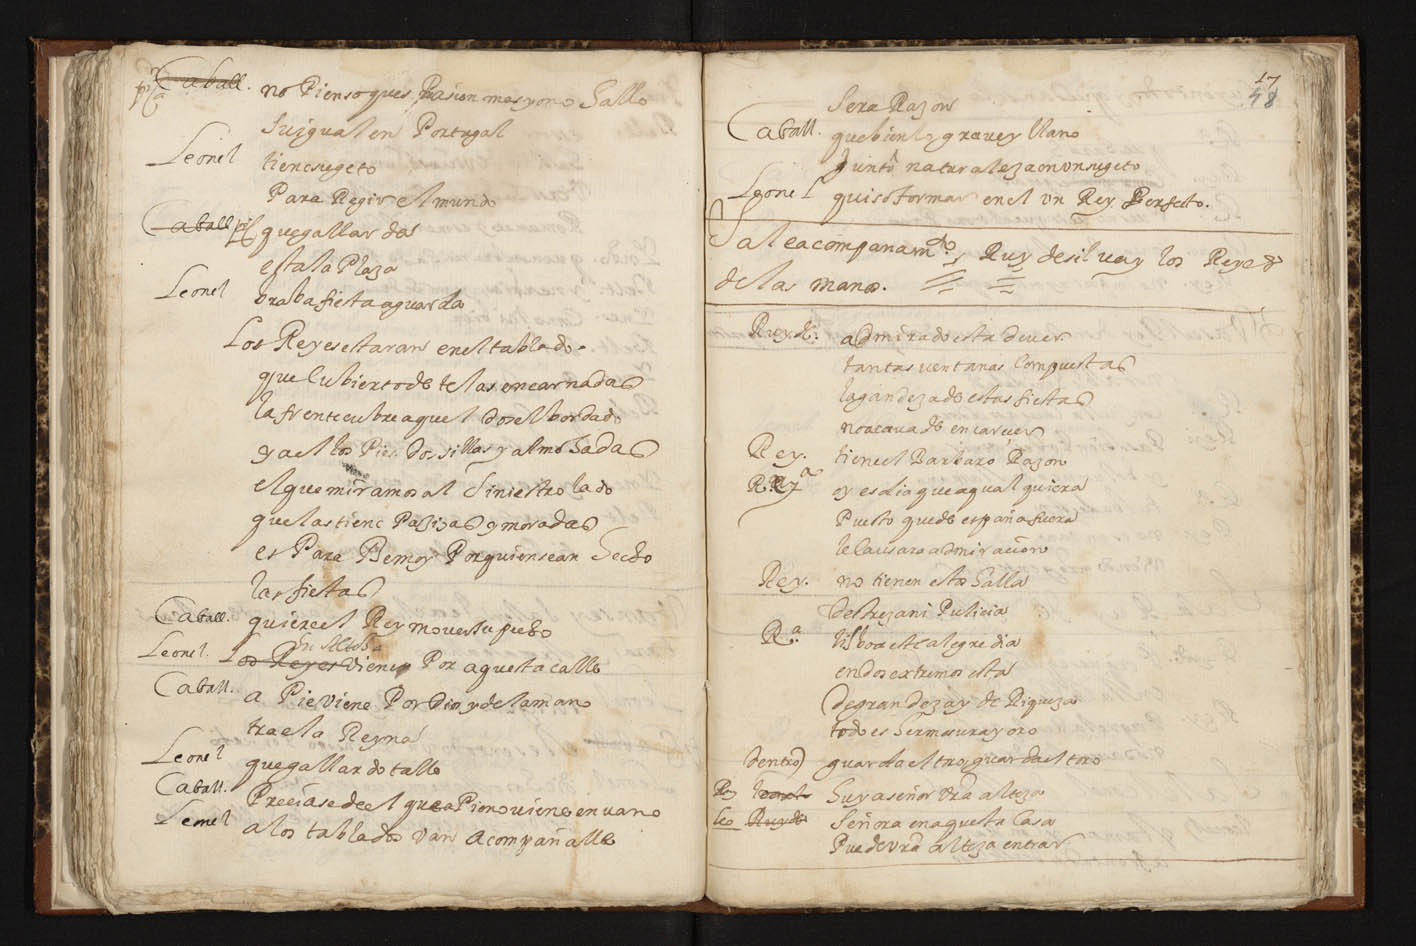 Caball. no Pienso ques Pasion mas yo no Hallo
su ygual en Portugal
Leonel tiene sugeto
Para Regir el mundo
Caball que gallardos
esta la Plaza
Leonel braba fiesta aguardo
Los Reyes estaran en el tablado
que Cubierto de telas encarnadas
la frente cubre aquel dosel bordado
y a el los Pies Dos sillas y almohadas
el que miramos al Siniestro lado
que las tiene Pajizas y moradas
es Para Remon Por quien se an Hecho
las fiestas
Caball. quiere el Rey mover su pecho
Su Alteza
Leonel. Los Reyes viene Por aquesta calle
Caball. a Pie viene Por Dios y de la mano
trae la Reyna
Leonel que gallardo talle
Caball. Preciase de el que a Pie no viene en vano
Leonel a los tablados van Acompañalle
17
48
Sera Razon
Caball. que bien lo grave y llano
junto naturaleza en un sugeto
Leonel quiso formar en el un Rey Perfecto.
Sale acompanam.to y Ruy de silva y los Reyes
de las manos.
Ruy d. admirado esta de ver
tantas ventanas Compuestas
la grandeza de estas fiestas
no acava de encarecer
Rey. tiene el Barbaro Razon
R.a oy es dia que a qualquiera
Puesto que de españa fuera
le Causara admiracion
Rey. no tienen estos Halla
destreza ni Pulicia
R.a lisboa este alegre dia
en dos extremos esta
de grandeza y de Riqueza
todo es Hermosura y oro
Dentro) guarda el toro, guarda el toro
Rey Huya señor vra alteza
Leo Ruyde Señora en aquesta Casa
Puede vra alteza entrar